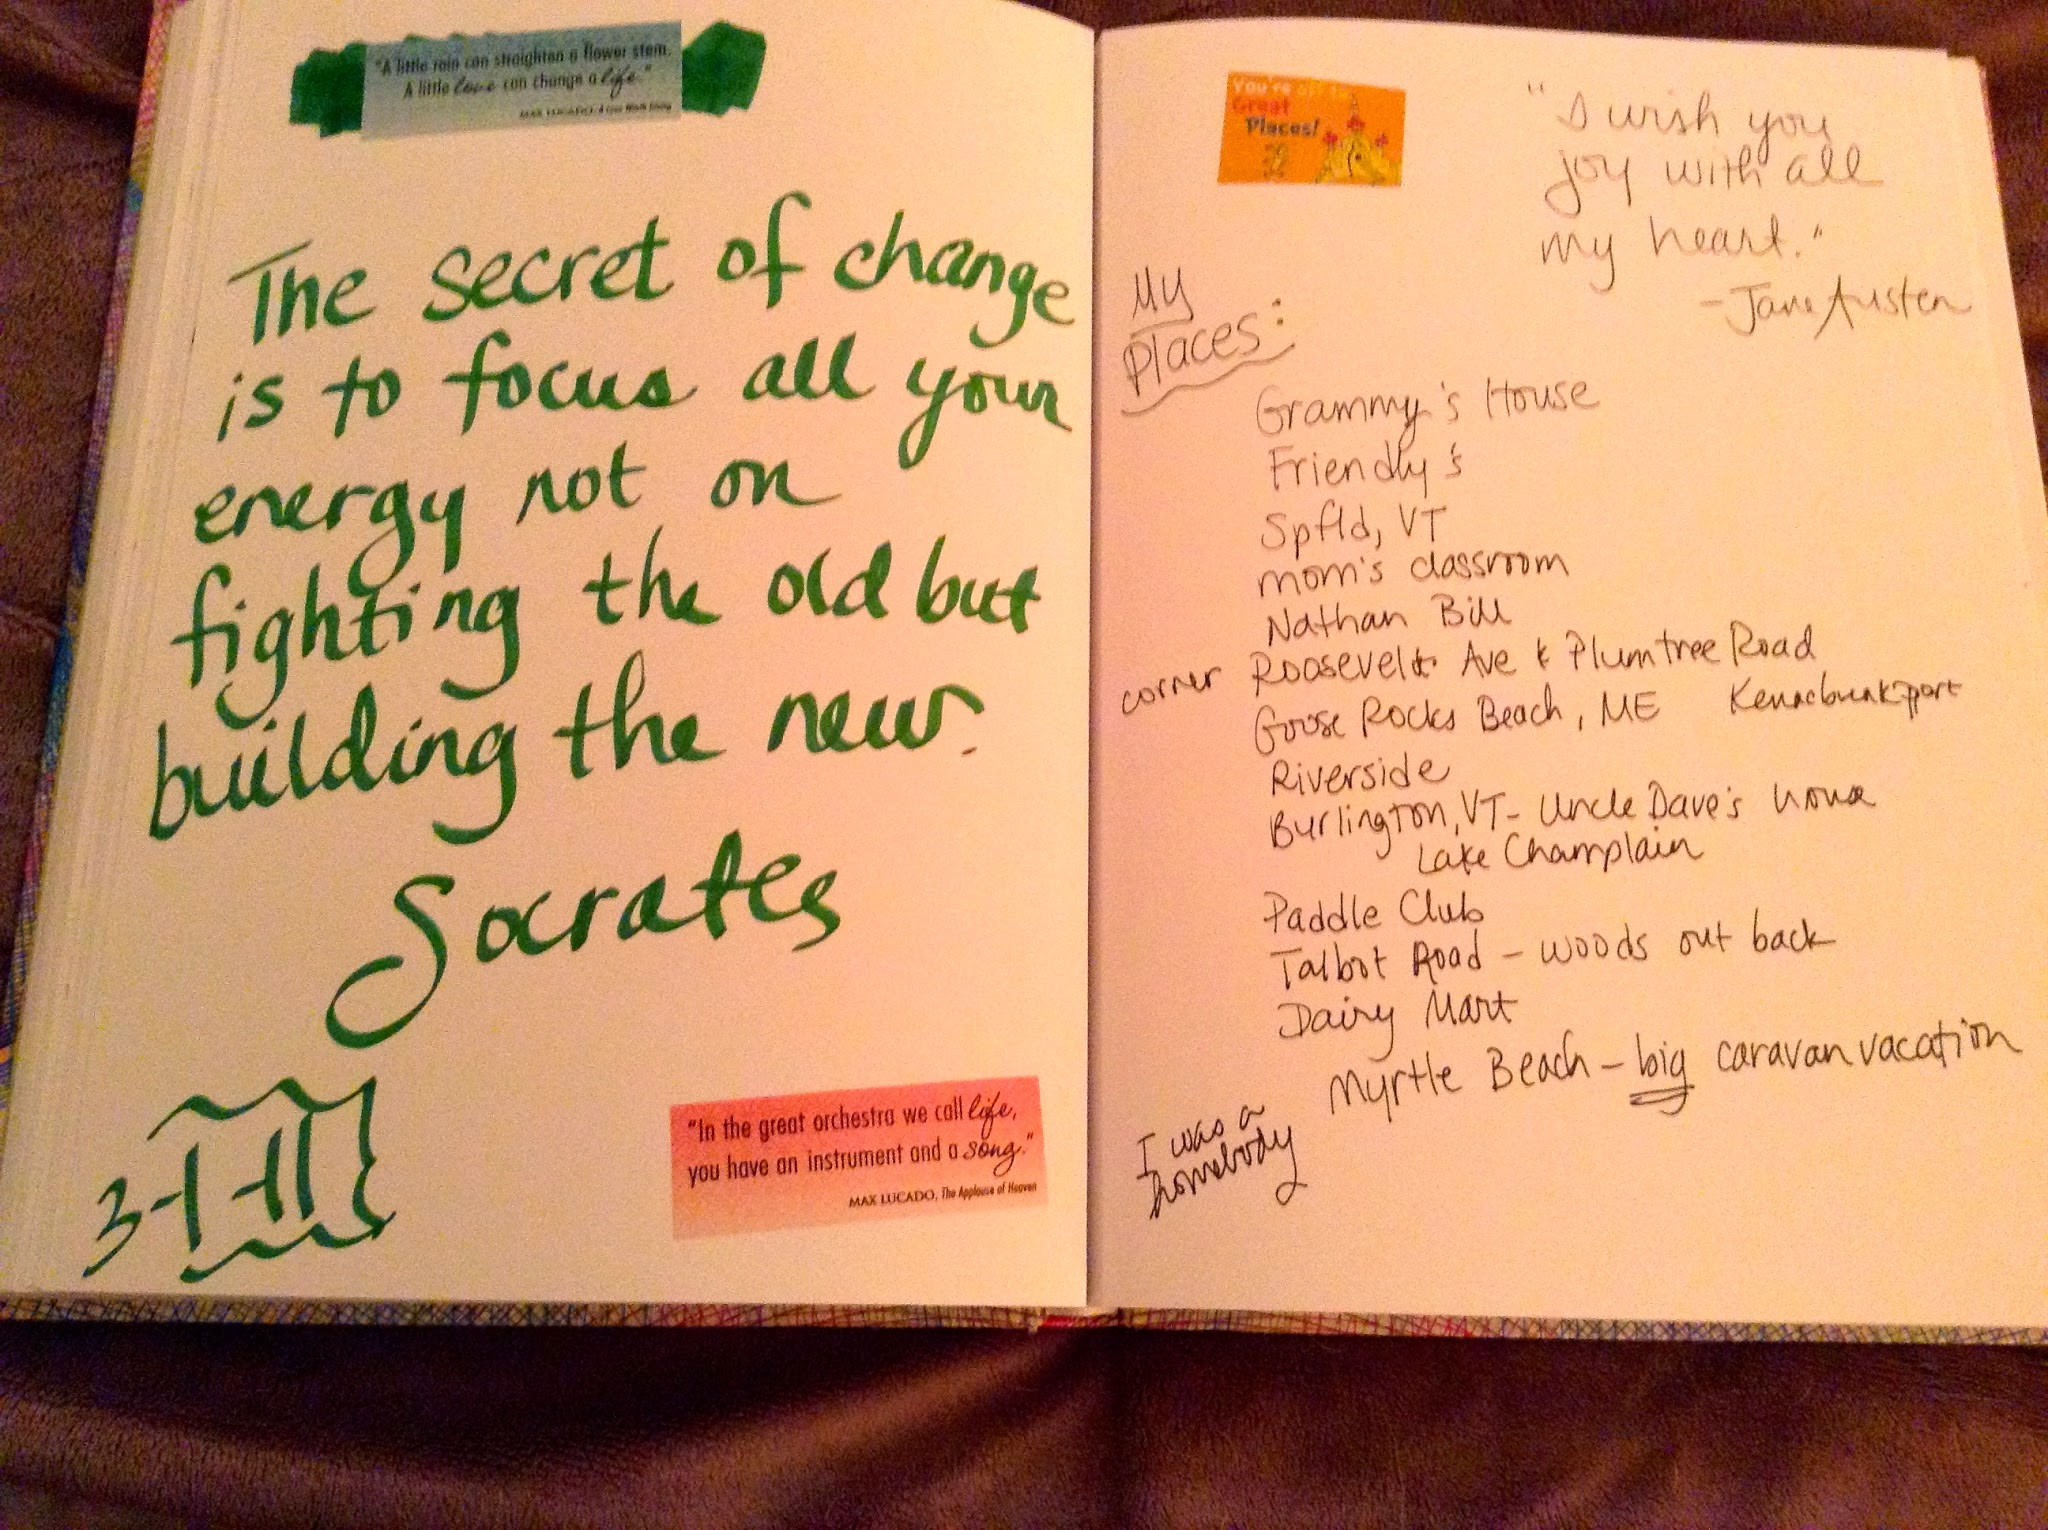 "A little rain can straighten a flower stem.
A little love can change a life."
MAX LUCADO,
The secret of change
is to focus all your
energy not on
fighting the old but
building the new.
Socrates
"In the great orchestra we call life,
you have an instrument and a song."
MAX LUCADO, The Applause of Heaven
You're off to
Great
Places!
"I wish you
joy with all
my heart."
-Jane Austen
My
Places:
Grammy's House
Friendly's
Spfld, VT
mom's classroom
Nathan Bill
corner Roosevelt Ave & Plumtree Road
Goose Rocks Beach, ME Kennebunkport
Riverside
Burlington, VT - Uncle Dave's house
Lake Champlain
Paddle Club
Talbot Road - woods out back
Dairy Mart
Myrtle Beach - big caravan vacation
I was a
homebody